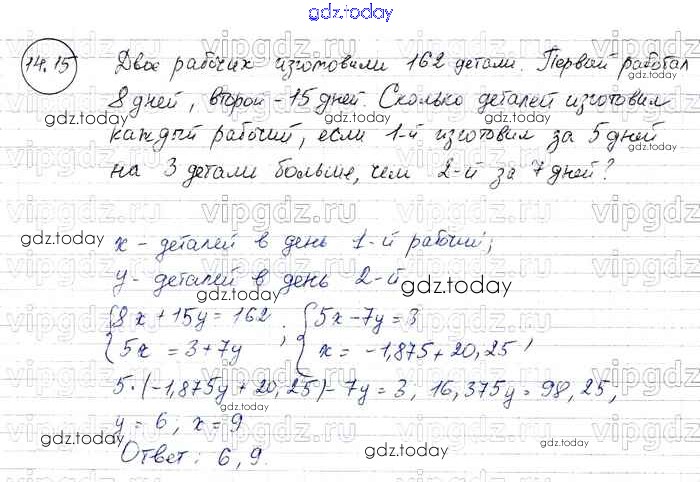 gdz.today
14.15 Двое рабочих изготовили 162 детали. Первый работал
8 дней, второй - 15 дней. Сколько деталей изготовил
каждый рабочий, если 1-й изготовил за 5 дней
на 3 детали больше, чем 2-й за 7 дней?
x - деталей в день 1-й рабочий;
y - деталей в день 2-й
{8x + 15y = 162 ; {5x - 7y = 3
{5x = 3 + 7y {x = -1,875 + 20,25 ,
5·(-1,875y + 20,25) - 7y = 3, 16,375y = 98,25,
y = 6, x = 9
Ответ: 6, 9.